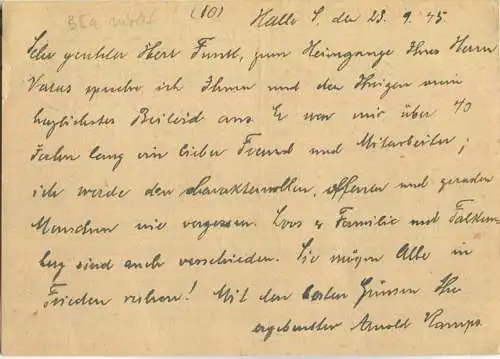 (10) Halle S. den 23. 9. 45
Sehr geehrter Herr Funtl, zum Heimgange Ihres Herrn
Vaters spreche ich Ihnen und den Ihrigen mein
herzlichstes Beileid aus. Er war mir über 40
Jahre lang ein lieber Freund und Mitarbeiter;
ich werde den charaktervollen, offenen und geraden
Menschen nie vergessen. Familie und Falken-
berg sind auch verschieden. Sie mögen Alle in
Frieden ruhen! Mit den besten Grüssen Ihr
ergebenster Arnold